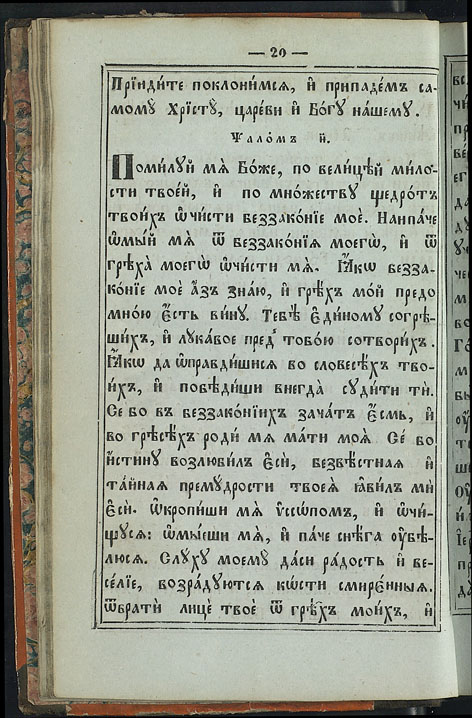 — 20 —
Прїиди́те поклони́мсѧ, и҆ припаде́мъ са-
мому̀ Хрїстꙋ̀, царе́ви и҆ Бо́гꙋ на́шемꙋ.
Ѱало́мъ н҃.
Поми́лꙋй мѧ̀ Бо́же, по вели́цѣй ми́ло-
сти твое́й, и҆ по мно́жествꙋ щедро́тъ
твои́хъ ѡ҆чи́сти беззако́нїе моѐ. Наипа́че
ѡ҆мы́й мѧ̀ ѿ беззако́нїѧ моегѡ̀, и҆ ѿ
грѣха̀ моегѡ̀ ѡ҆чи́сти мѧ̀. Ꙗ҆́кѡ безза-
ко́нїе моѐ а҆́зъ зна́ю, и҆ грѣ́хъ мо́й предо
мно́ю є҆́сть вы́нꙋ. Тебѣ̀ є҆ди́номꙋ согрѣ-
ши́хъ, и҆ лꙋка́вое пред̾ тобо́ю сотвори́хъ.
Ꙗ҆́кѡ да ѡ҆правди́шисѧ во словесѣ́хъ тво-
и́хъ, и҆ побѣди́ши внегда̀ сꙋди́ти тѝ.
Се́ бо въ беззако́нїихъ зача́тъ є҆́смь, и҆
во грѣсѣ́хъ роди́ мѧ ма́ти моѧ̀. Се́ бо
и҆́стинꙋ возлюби́лъ є҆сѝ, безвѣ́стнаѧ и҆
та́йнаѧ премꙋ́дрости твоеѧ̀ ꙗ҆ви́лъ мѝ
є҆сѝ. Ѡ҆кропи́ши мѧ̀ ѵ҆ссѡ́помъ, и҆ ѡ҆чи́-
щꙋсѧ: ѡ҆мы́еши мѧ̀, и҆ па́че снѣ́га ᲂу҆бѣ-
лю́сѧ. Слꙋ́хꙋ моемꙋ̀ да́си ра́дость и҆ ве-
се́лїе, возра́дꙋютсѧ кѡ́сти смире́нныѧ.
Ѿвратѝ лицѐ твоѐ ѿ грѣ́хъ мои́хъ, и҆